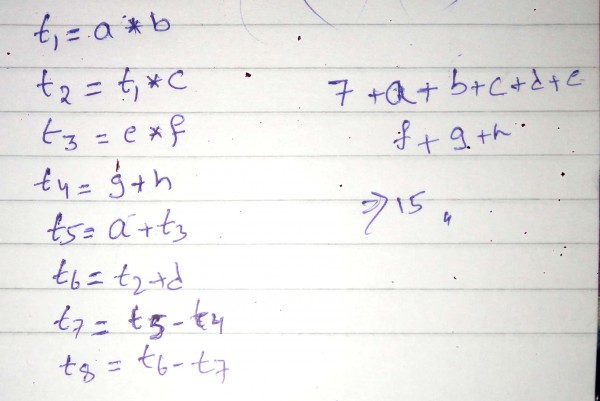 t1 = a * b
t2 = t1 * c
t3 = e * f
t4 = g + h
t5 = a + t3
t6 = t2 + d
t7 = t5 - t4
t8 = t6 - t7
7 + a + b + c + d + e
f + g + h
⇒ 15 "